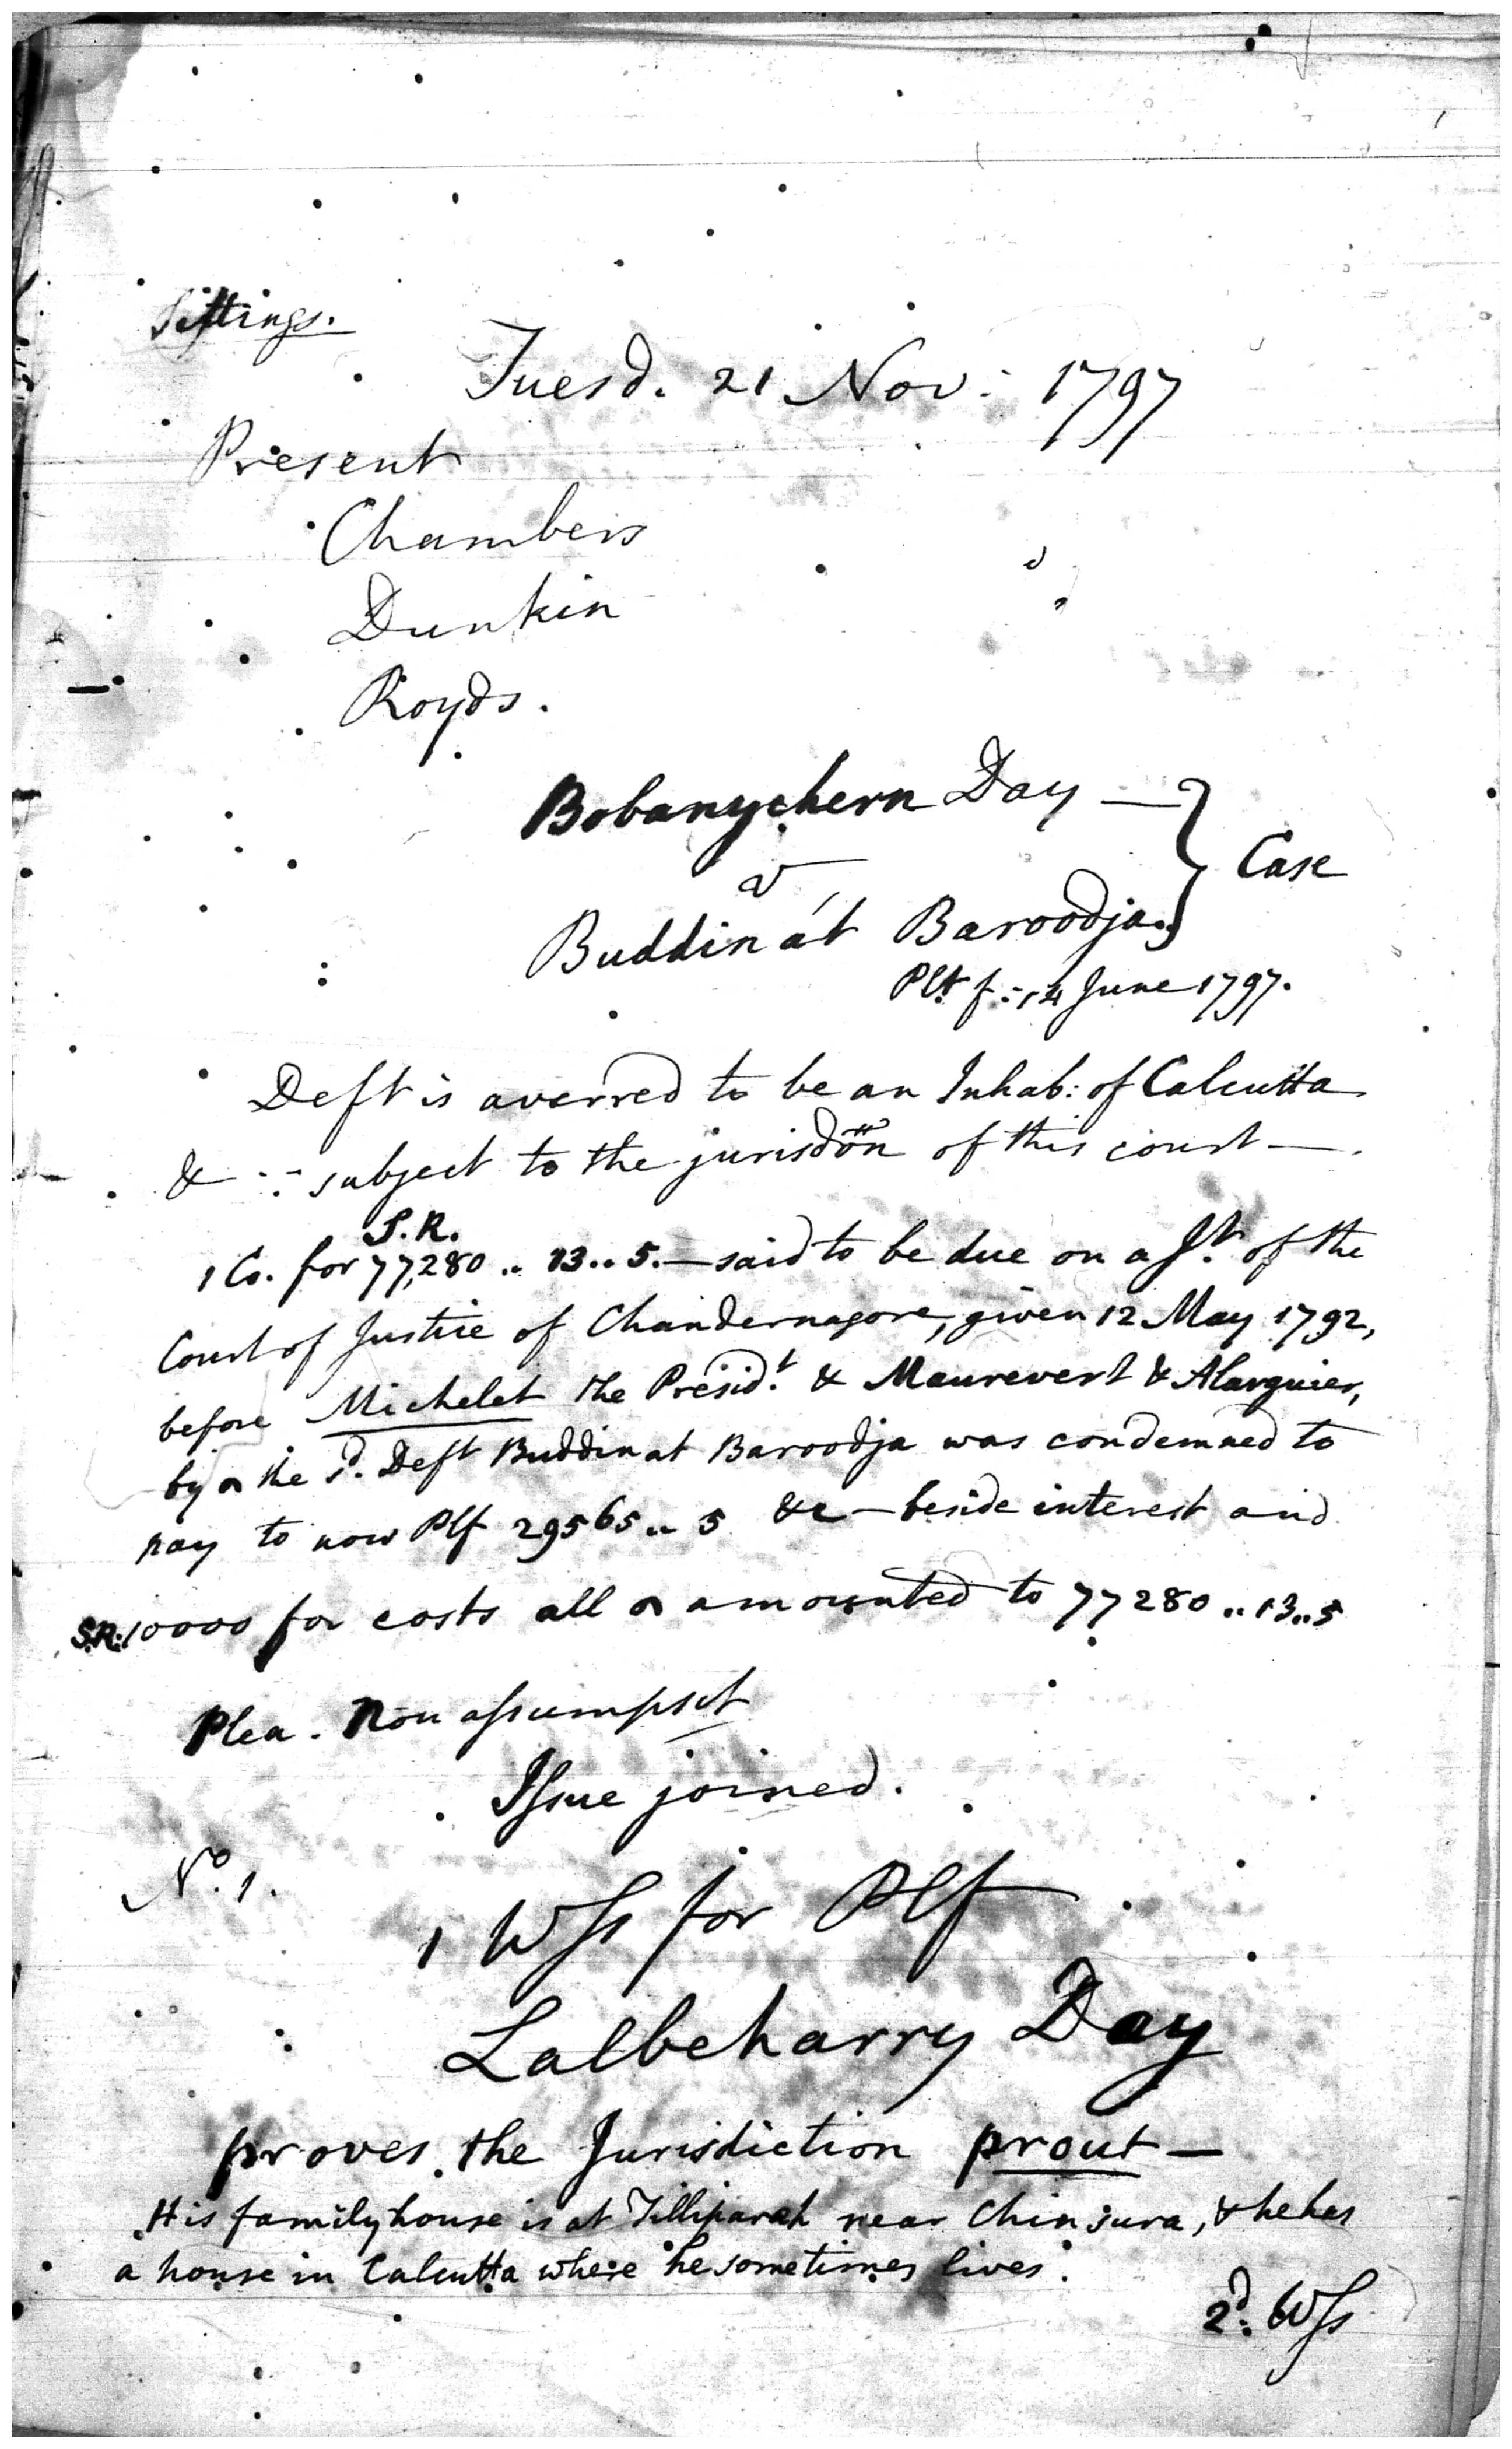 Sittings.
Tuesd. 21 Nov: 1797
Present
Chambers
Dunkin
Royds.
Bobanychern Day —
v
Case
Buddinát Baroodja.
Plt f: 14 June 1797.
Deft is averred to be an Inhab: of Calcutta
& ∵ subject to the jurisdõn of this court —.
S.R.
1 Co. for 77,280 .. 13 .. 5. — said to be due on a Jt. of the
Court of Justice of Chandernagore, given 12 May 1792,
before Michelet the Presidt. & Maurevert & Alarguier,
by the sd. Deft Buddinat Baroodja was condemned to
pay to now Plf 29565 .. 5 &c — beside interest and
S.R. 10000 for costs all amounted to 77280 .. 13 .. 5
Plea. Non assumpsit
Issue joined.
No. 1.
1 Wss for Plf
Lalbeharry Day
proves the Jurisdiction prout —
His family house is at Tilliparah near Chinsura, & he has
a house in Calcutta where he sometimes lives.
2d. Wss